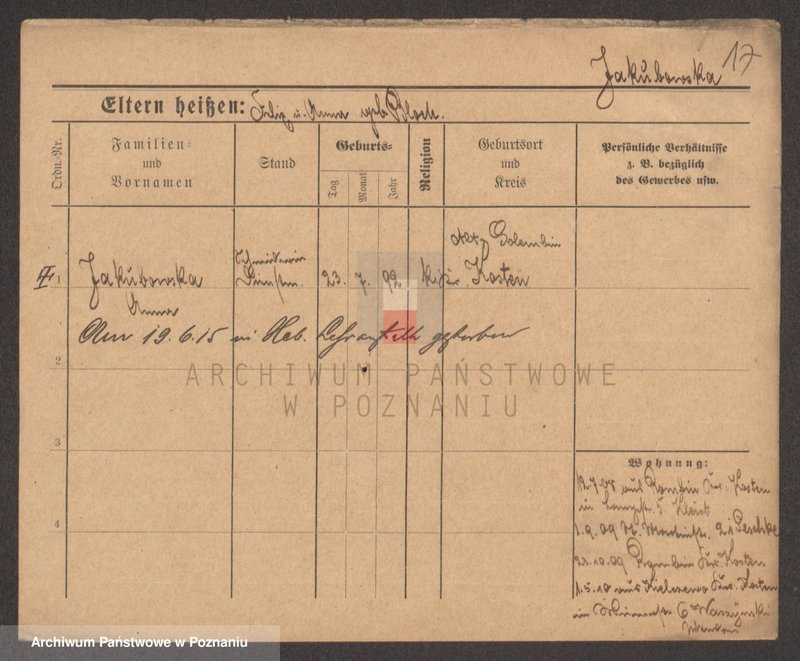 17
Jakubowska
Eltern heißen: Felix u. Anna geb. Bloch.
Ordn.-Nr.
Familien- und Vornamen
Stand
Geburts-
Tag
Monat
Jahr
Religion
Geburtsort und Kreis
Persönliche Verhältnisse z. B. bezüglich des Gewerbes usw.
1
Jakubowska
Anna
Schneiderin
Dienstm.
23. 7. 92
k.
Golembin
Kr. Kosten
Am 19.6.15 in Heb. Lehranstalt gestorben
2
3
4
Wohnung:
12.7.07 aus Rombin Kr. Kosten
in 5
1.9.09 St. Martinstr. 21 Peschke
Kr. Kosten
1.5.10 aus Kr. Kosten
in 6
ARCHIWUM PAŃSTWOWE
W POZNANIU
Archiwum Państwowe w Poznaniu